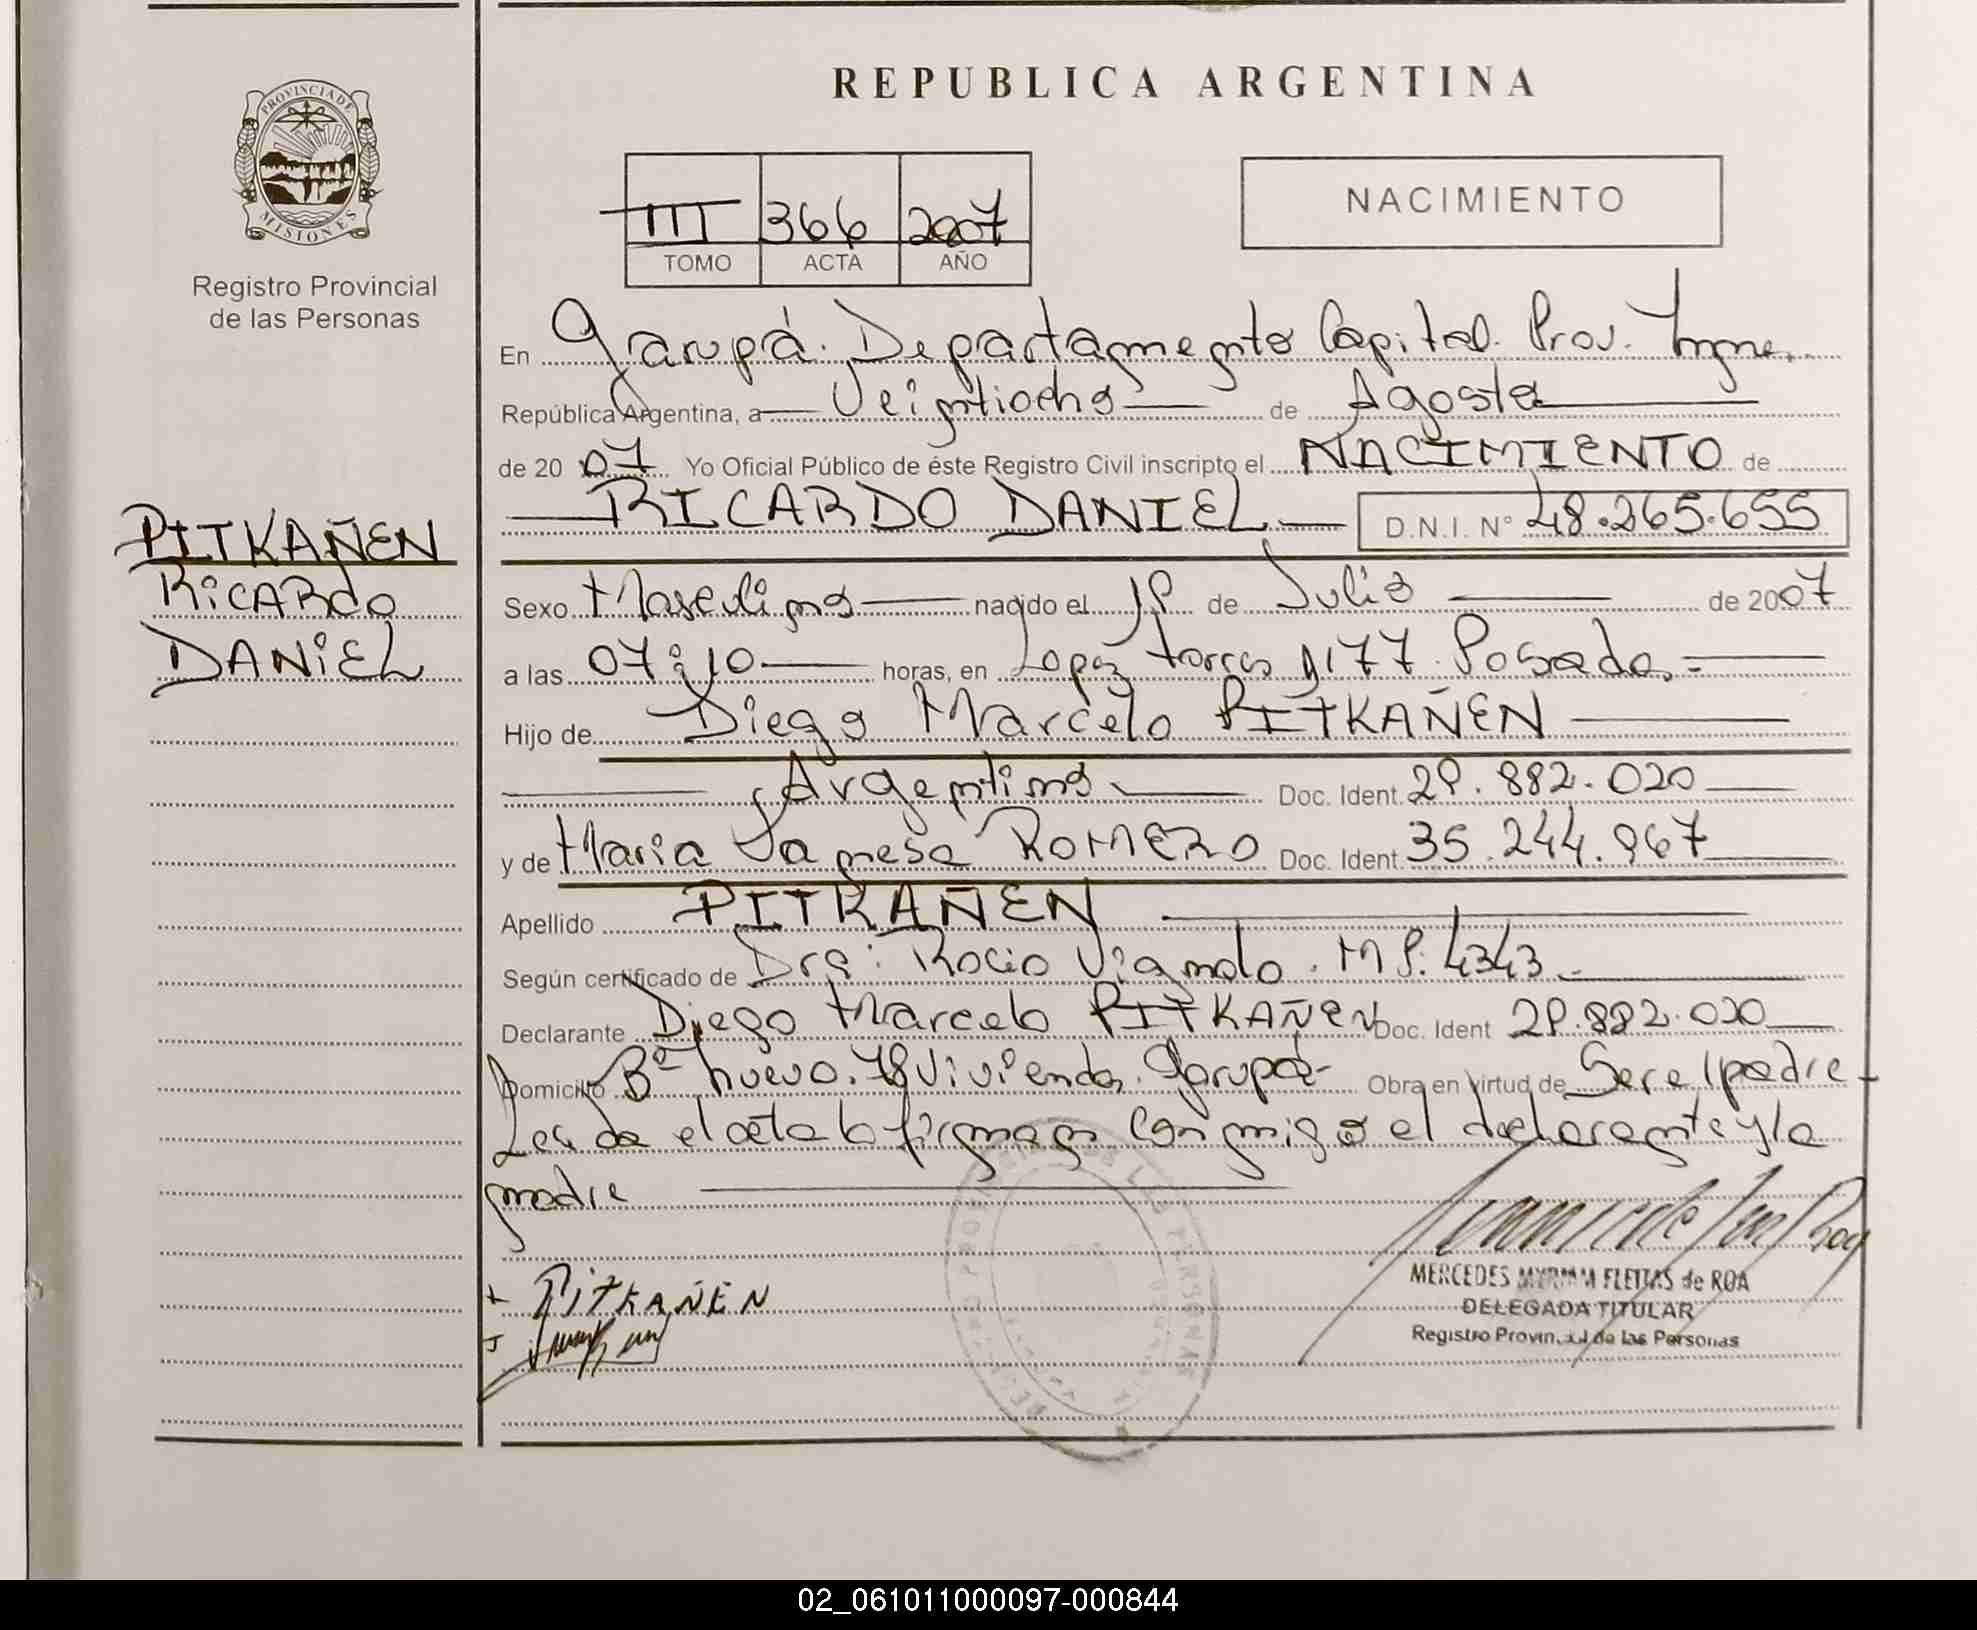 REPUBLICA ARGENTINA
PROVINCIA DE MISIONES
Registro Provincial
de las Personas
III 366 2007
TOMO ACTA AÑO
NACIMIENTO
En Garupá. Departamento Capital. Prov. Mnes.
República Argentina, a Veintiocho de Agosto
de 2007 Yo Oficial Público de éste Registro Civil inscripto el NACIMIENTO de
RICARDO DANIEL D.N.I. N° 48.265.655
PITKAÑEN
RICARDO
DANIEL
Sexo Masculino nacido el 19 de Julio de 2007
a las 07:10 horas, en Lopez torres 1177. Posadas
Hijo de Diego Marcelo PITKAÑEN
Argentino Doc. Ident. 29.882.020
y de Maria Vanesa ROMERO Doc. Ident. 35.244.967
Apellido PITKAÑEN
Según certificado de Dra: Rocio Vignolo. M P. 4343
Declarante Diego Marcelo PITKAÑEN Doc. Ident 29.882.020
Domicilio Bº nuevo. 78 Viviendas. Garupá Obra en virtud de Ser el padre
Leida el acta la firman conmigo el declarante y la
madre
PITKAÑEN
MERCEDES MYRIAM FLEITAS de ROA
DELEGADA TITULAR
Registro Provincial de las Personas
02_061011000097-000844